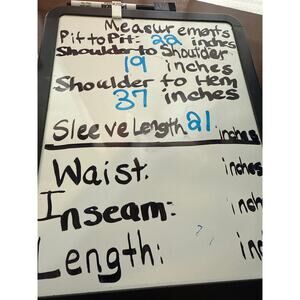 Measurements
Pit to Pit: 22 inches
Shoulder to Shoulder
19 inches
Shoulder to Hem
37 inches
Sleeve Length 21 inches
Waist: inches
Inseam: inch
Length: inc